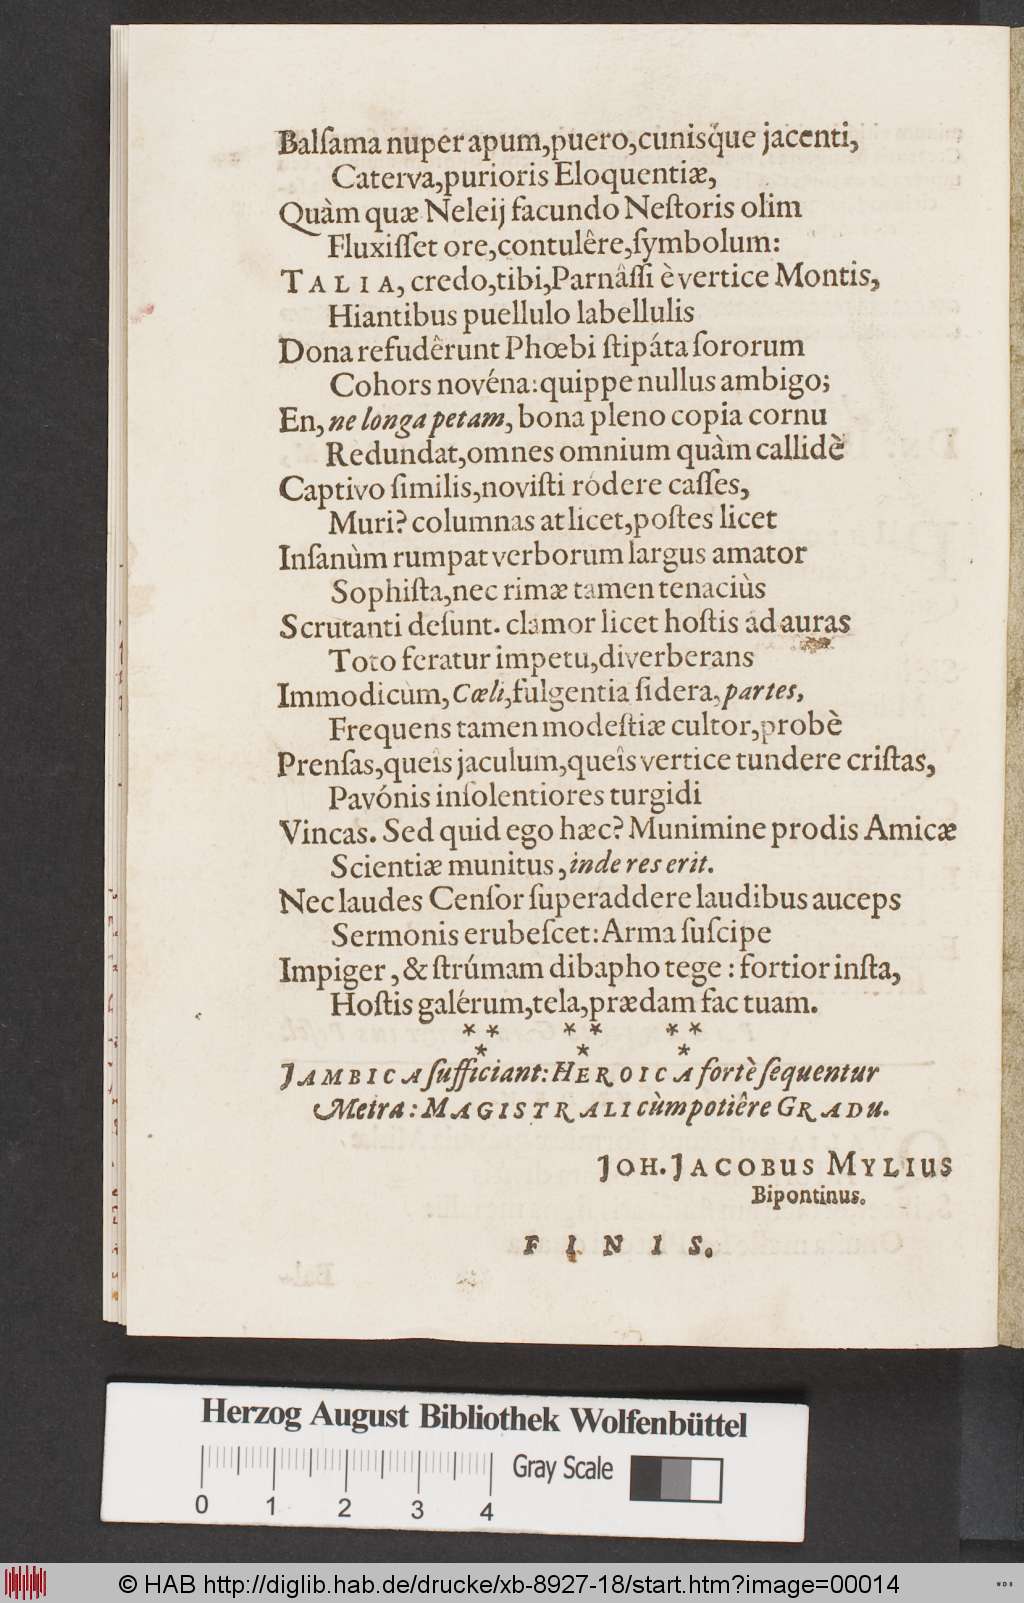 Balſama nuper apum, puero, cunisq́ue jacenti,
Caterva, purioris Eloquentiæ,
Quàm quæ Neleij facundo Neſtoris olim
Fluxiſſet ore, contulêre, ſymbolum:
TALIA, credo, tibi, Parnâſſi è vertice Montis,
Hiantibus puellulo labellulis
Dona refudêrunt Phœbi ſtipáta ſororum
Cohors novéna: quippe nullus ambigo;
En, ne longa petam, bona pleno copia cornu
Redundat, omnes omnium quàm callidè
Captivo ſimilis, noviſti ródere caſſes,
Muri? columnas at licet, poſtes licet
Inſanùm rumpat verborum largus amator
Sophiſta, nec rimæ tamen tenaciùs
Scrutanti deſunt. clamor licet hoſtis ad auras
Toto feratur impetu, diverberans
Immodicùm, Cœli, fulgentia ſidera, partes,
Frequens tamen modeſtiæ cultor, probè
Prenſas, queîs jaculum, queîs vertice tundere criſtas,
Pavónis inſolentiores turgidi
Vincas. Sed quid ego hæc? Munimine prodis Amicæ
Scientiæ munitus, inde res erit.
Nec laudes Cenſor ſuperaddere laudibus auceps
Sermonis erubeſcet: Arma ſuſcipe
Impiger, & ſtrúmam dibapho tege: fortior inſta,
Hoſtis galérum, tela, prædam fac tuam.
* * * * * *
* * *
JAMBICA ſufficiant: HEROICA fortè ſequentur
Metra: MAGISTRALI cùm potiêre GRADU.
JOH. JACOBUS MYLIUS
Bipontinus.
FINIS.
Herzog August Bibliothek Wolfenbüttel
Gray Scale
0 1 2 3 4
© HAB http://diglib.hab.de/drucke/xb-8927-18/start.htm?image=00014